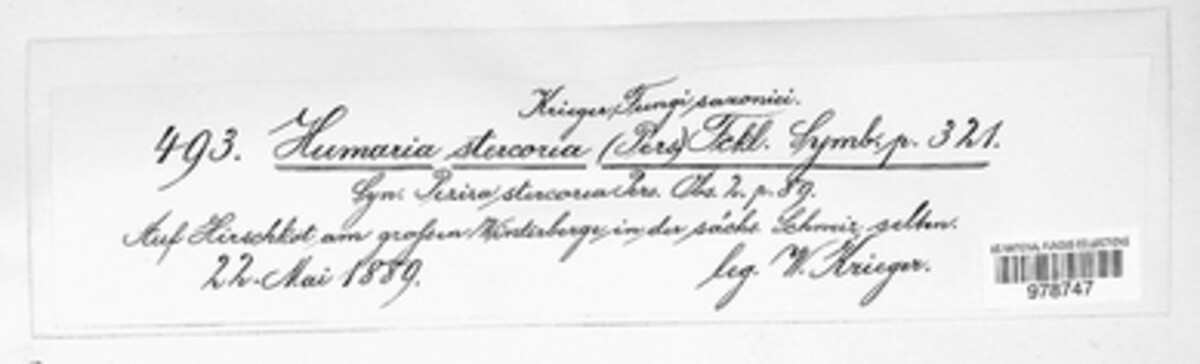 Krieger, Fungi saxonici.
493. Humaria stercorea (Pers.) Fckl. Symb. p. 321.
Syn. Peziza stercorea Pers. Obs. 2. p. 89.
Auf Hirschkot am großen Winterberge in der sächs. Schweiz, selten.
22. Mai 1889.
leg. W. Krieger.
US NATIONAL FUNGUS COLLECTIONS
978747